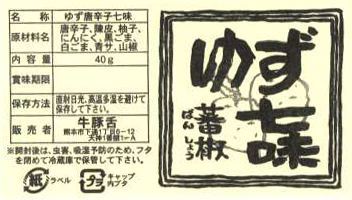 名称 ゆず唐辛子七味
原材料名 唐辛子、陳皮、柚子、
にんにく、黒ごま、
白ごま、青サ、山椒
内容量 40g
賞味期限
保存方法 直射日光、高温多湿を避けて
保存して下さい。
販売者 牛豚舌
熊本市下通1丁目6-12
天神1番館1-A
※開封後は、虫害、吸湿予防のため、フタ
を閉めて冷蔵庫で保管して下さい。
紙 ラベル
プラ キャップ
内ブタ
ゆず
七味
蕃椒
ばんしょう